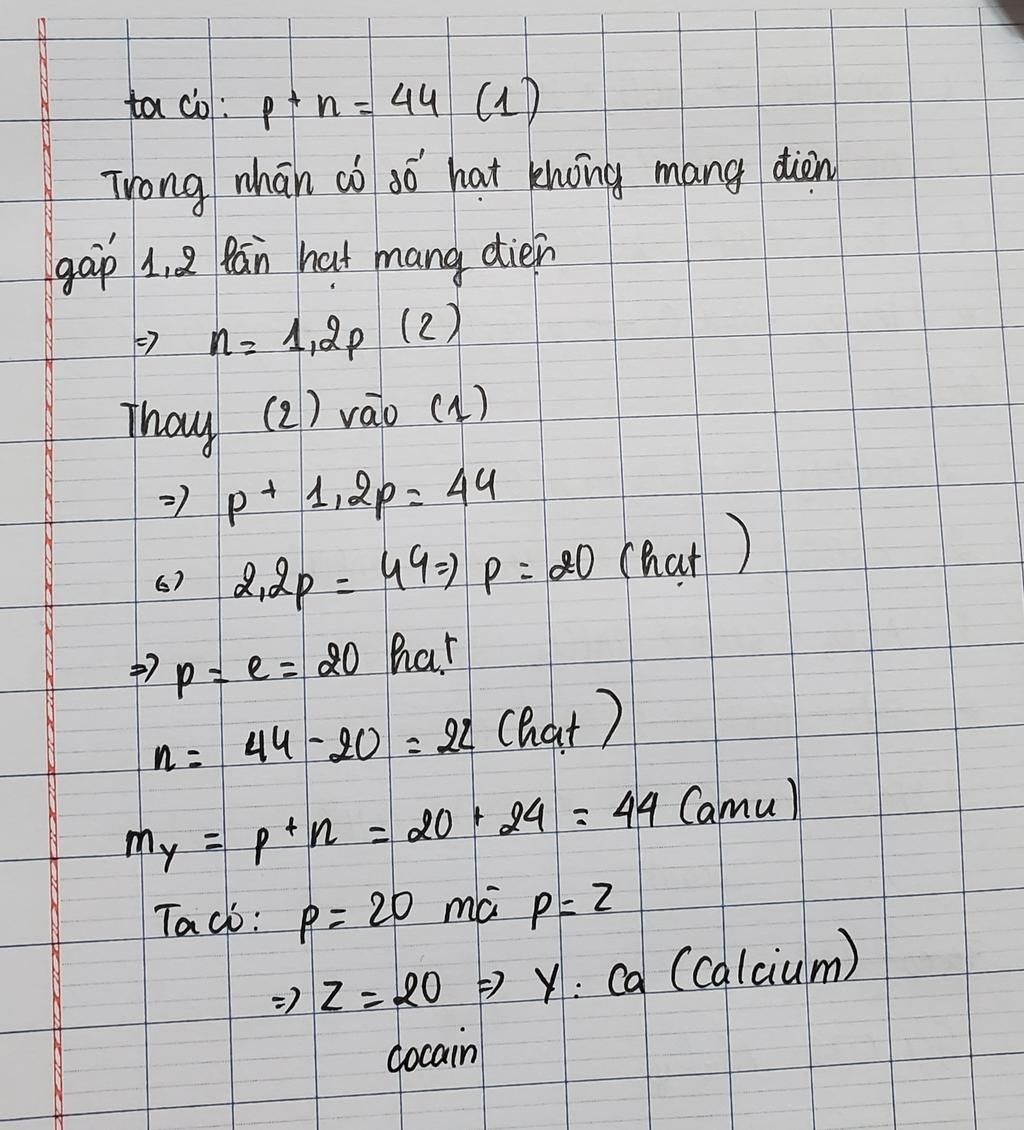 ta có: p + n = 44 (1)
Trong nhân có số hạt không mang điện
gấp 1,2 lần hạt mang điện
=> n = 1,2p (2)
Thay (2) vào (1)
=> p + 1,2p = 44
<=> 2,2p = 44 => p = 20 (hạt)
=> p = e = 20 hạt
n = 44 - 20 = 22 (hạt)
my = p + n = 20 + 24 = 44 (amu)
Ta có: p = 20 mà p = Z
=> Z = 20 => Y: Ca (Calcium)
cocain